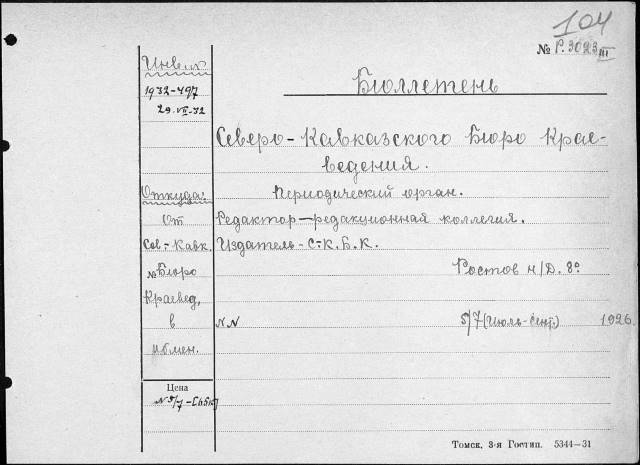 104
№ Р.3023 III
Инв. №
1932-497
29.VII-32
Бюллетень
Северо-Кавказского Бюро Крае-
ведения.
Откуда:
Периодический орган.
От
Редактор—редакционная коллегия.
Сев.-Кавк.
Издатель-С-К.Б.К.
№ Бюро
Ростов н/Д. 8°
Краевед,
в
NN 5/7 (Июль-Сент.) 1926.
обмен.
Цена
N 5/7-
Томск, 3-я Гостип. 5344—31